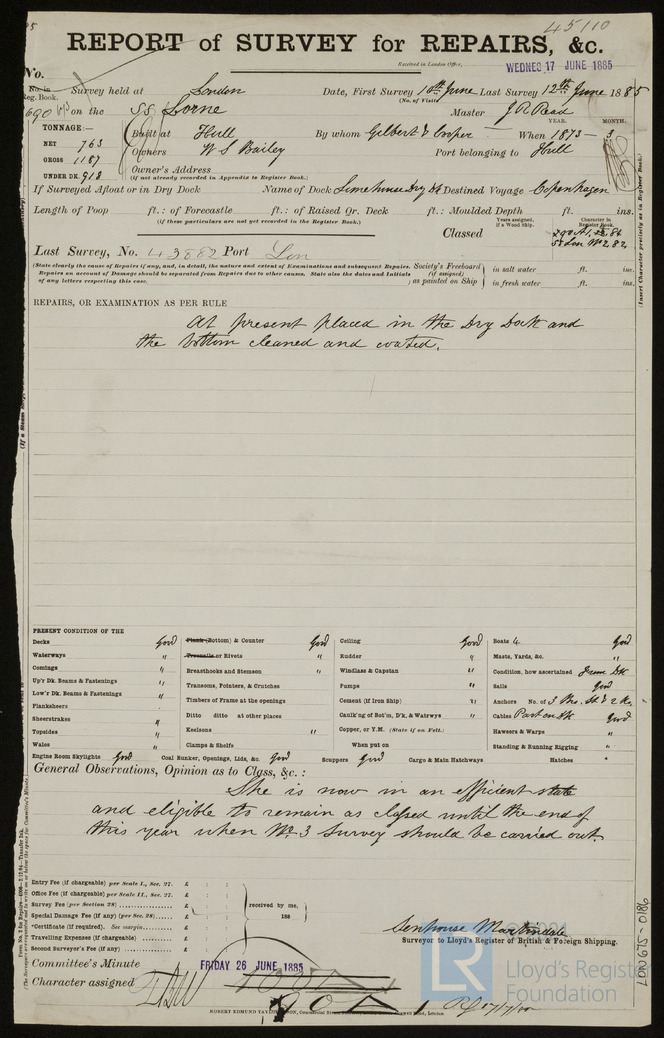 45110
REPORT of SURVEY for REPAIRS, &c.
Received in London Office,
WEDNES 17 JUNE 1885
No.
No. in Reg. Book.
690
Survey held at London Date, First Survey 10th June Last Survey 12th June 1885
(No. of Visits
on the SS Lorne Master J R Read
TONNAGE:—
NET 763
GROSS 1187
UNDER DK. 918
Built at Hull By whom Gilbert & Cooper When 1873 - 3
YEAR. MONTH.
Owners W S Bailey Port belonging to Hull
Owner's Address
(If not already recorded in Appendix to Register Book.)
If Surveyed Afloat or in Dry Dock Name of Dock Limehouse Dry Dk Destined Voyage Copenhagen
Length of Poop ft.: of Forecastle ft.: of Raised Qr. Deck ft.: Moulded Depth ft. ins.
(if these particulars are not yet recorded in the Register Book.)
Years assigned, if a Wood Ship.
Character in Register Book.
Classed
Last Survey, No. 43882 Port Lon
(State clearly the cause of Repairs if any, and, in detail, the nature and extent of Examinations and subsequent Repairs.
Repairs on account of Damage should be separated from Repairs due to other causes. State also the dates and Initials
of any letters respecting this case.
Society's Freeboard (if assigned) as painted on Ship
in salt water ft. ins.
in fresh water ft. ins.
REPAIRS, OR EXAMINATION AS PER RULE
At present placed in the Dry Dock and
the bottom cleaned and coated.
PRESENT CONDITION OF THE
Decks Good
Waterways "
Comings "
Up'r Dk. Beams & Fastenings "
Low'r Dk. Beams & Fastenings "
Planksheers
Sheerstrakes "
Topsides "
Wales "
Engine Room Skylights Good
Plank (Bottom) & Counter Good
Treenails or Rivets "
Breasthooks and Stemson "
Transoms, Pointers, & Crutches
Timbers of Frame at the openings
Ditto ditto at other places
Keelsons "
Clamps & Shelfs
Coal Bunker, Openings, Lids, &c. Good
Ceiling Good
Rudder "
Windlass & Capstan "
Pumps "
Cement (if Iron Ship) "
Caulk'g of Bot'm, D'k, & Watrwys "
Copper, or Y.M. (State if on Felt.)
When put on
Scuppers Good Cargo & Main Hatchways
Boats 4 Good
Masts, Yards, &c. "
Condition, how ascertained from Dk
Sails Good
Anchors No. of 3 Bs. St. & 2 K.
Cables Part on Dk Good
Hawsers & Warps "
Standing & Running Rigging "
Hatches "
General Observations, Opinion as to Class, &c.:
She is now in an efficient state
and eligible to remain as classed until the end of
this year when No. 3 Survey should be carried out.
Entry Fee (if chargeable) per Scale I., Sec. 27. £ : :
Office Fee (if chargeable) per Scale II., Sec. 27. £ : :
Survey Fee (per Section 28) £ : :
Special Damage Fee (if any) (per Sec. 28) £ : :
*Certificate (if required). See margin. £ : :
Travelling Expenses (if chargeable) £ : :
Second Surveyor's Fee (if any) £ : :
received by me,
188
Senhouse Martindale
Surveyor to Lloyd's Register of British & Foreign Shipping.
Committee's Minute FRIDAY 26 JUNE 1885
Character assigned
LR
Lloyd's Register
Foundation
LON675-0186
(Insert Character precisely as in Register Book.)